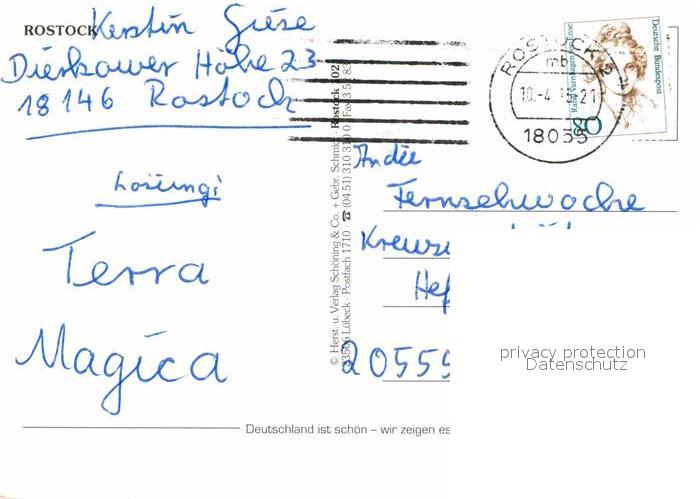 ROSTOCK
Kerstin Giese
Dierkower Höhe 23
18146 Rostock
Lösung:
Terra
Magica
© Herst. u. Verlag Schöning & Co. + Gebr. Schmidt
23506 Lübeck · Postfach 1710 · ☎ (0451) 310 310
Rostock
ROSTOCK
mb
10.-4.
-21
18055
Deutsche Bundespost
80
An die
Fernsehwoche
Kreuz
Hef
20555
privacy protection
Datenschutz
Deutschland ist schön – wir zeigen es